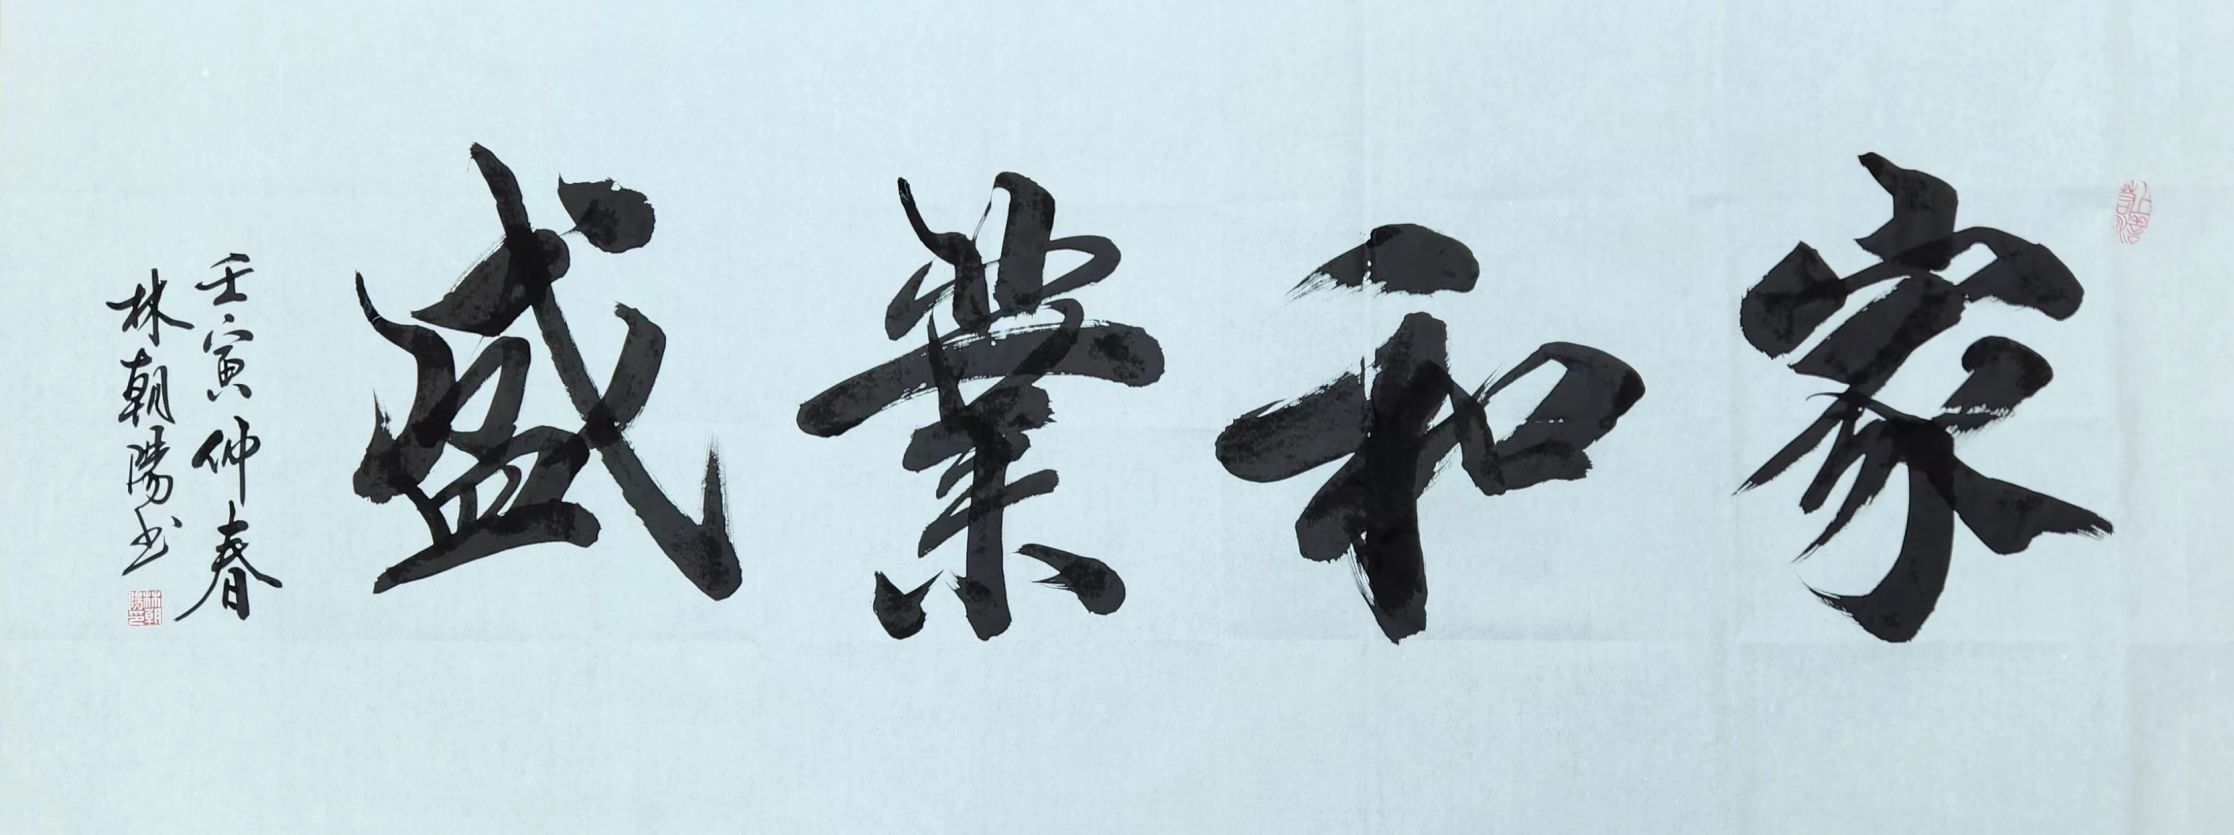 家和業盛
壬寅仲春
林朝陽书
林朝陽印